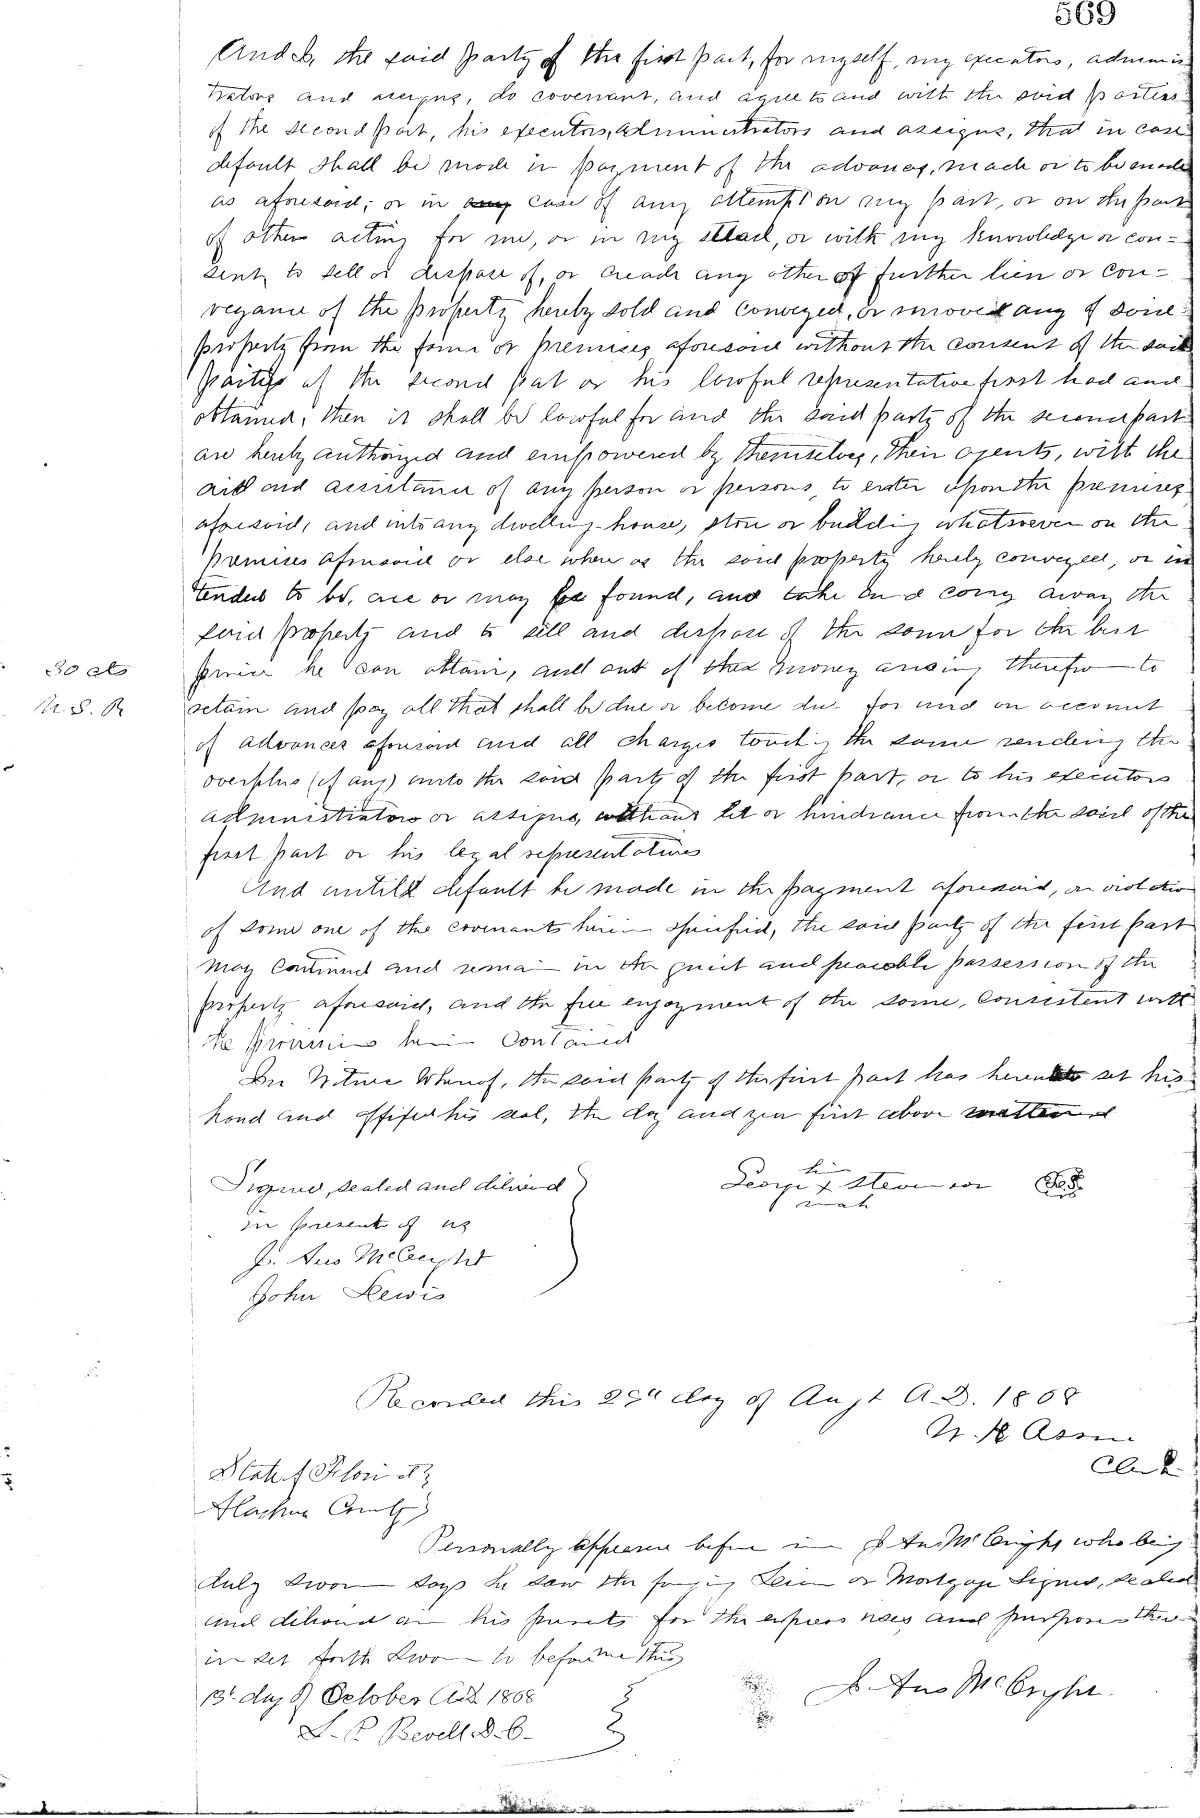 569
And I, the said party of the first part, for myself, my executors, adminis
trators and assigns, do covenant, and agree to and with the said parties
of the second part, his executors, administrators and assigns, that in case
default shall be made in payment of the advances, made or to be made
as aforesaid; or in any case of any attempt on my part, or on the part
of others acting for me, or in my stead, or with my knowledge or con=
sent, to sell or dispose of, or create any other of further lien or con=
veyance of the property hereby sold and conveyed, or remove any of said
property from the farm or premises aforesaid without the consent of the said
parties of the second part or his lawful representative first had and
obtained; then it shall be lawful for and the said party of the second part
are hereby authorized and empowered by themselves, their agents, with the
aid and assistance of any person or persons, to enter upon the premises
aforesaid, and into any dwelling-house, store or building whatsoever on the
premises aforesaid or else where as the said property hereby conveyed, or in
tended to be, are or may be found, and take and carry away the
said property and to sell and dispose of the same for the best
30 cts price he can obtain, and out of the money arising therefrom to
U.S.R retain and pay all that shall be due or become due for and on account
of advances aforesaid and all charges touching the same rendering the
overplus (if any) unto the said party of the first part, or to his executors
administrators or assigns, without let or hindrance from the said of the
first part or his legal representatives
And untill default be made in the payment aforesaid, or violation
of some one of the covenants herein specified, the said party of the first part
may continued and remain in the quiet and peaceable possession of the
property aforesaid, and the free enjoyment of the same, consistent with
the provisions herein contained
In Witness Whereof, the said party of the first part has hereunto set his
hand and affixed his seal, the day and year first above
Signed, sealed and delivered his
in present of us George x Stevenson
mark
J. Aus McCright
John Lewis
Recorded this day of Augt A.D. 1868
Clerk
State of Florida
Alachua County
Personally appeared before me J Aus McCright who being
duly sworn says he saw the foregoing Lien or Mortgage signed, sealed
and delivered in his presents for the express uses and purposes there
in set forth Sworn to before me this
13t day of October A.D. 1868 J. Aus McCright.
L. P. Bevell D.C.